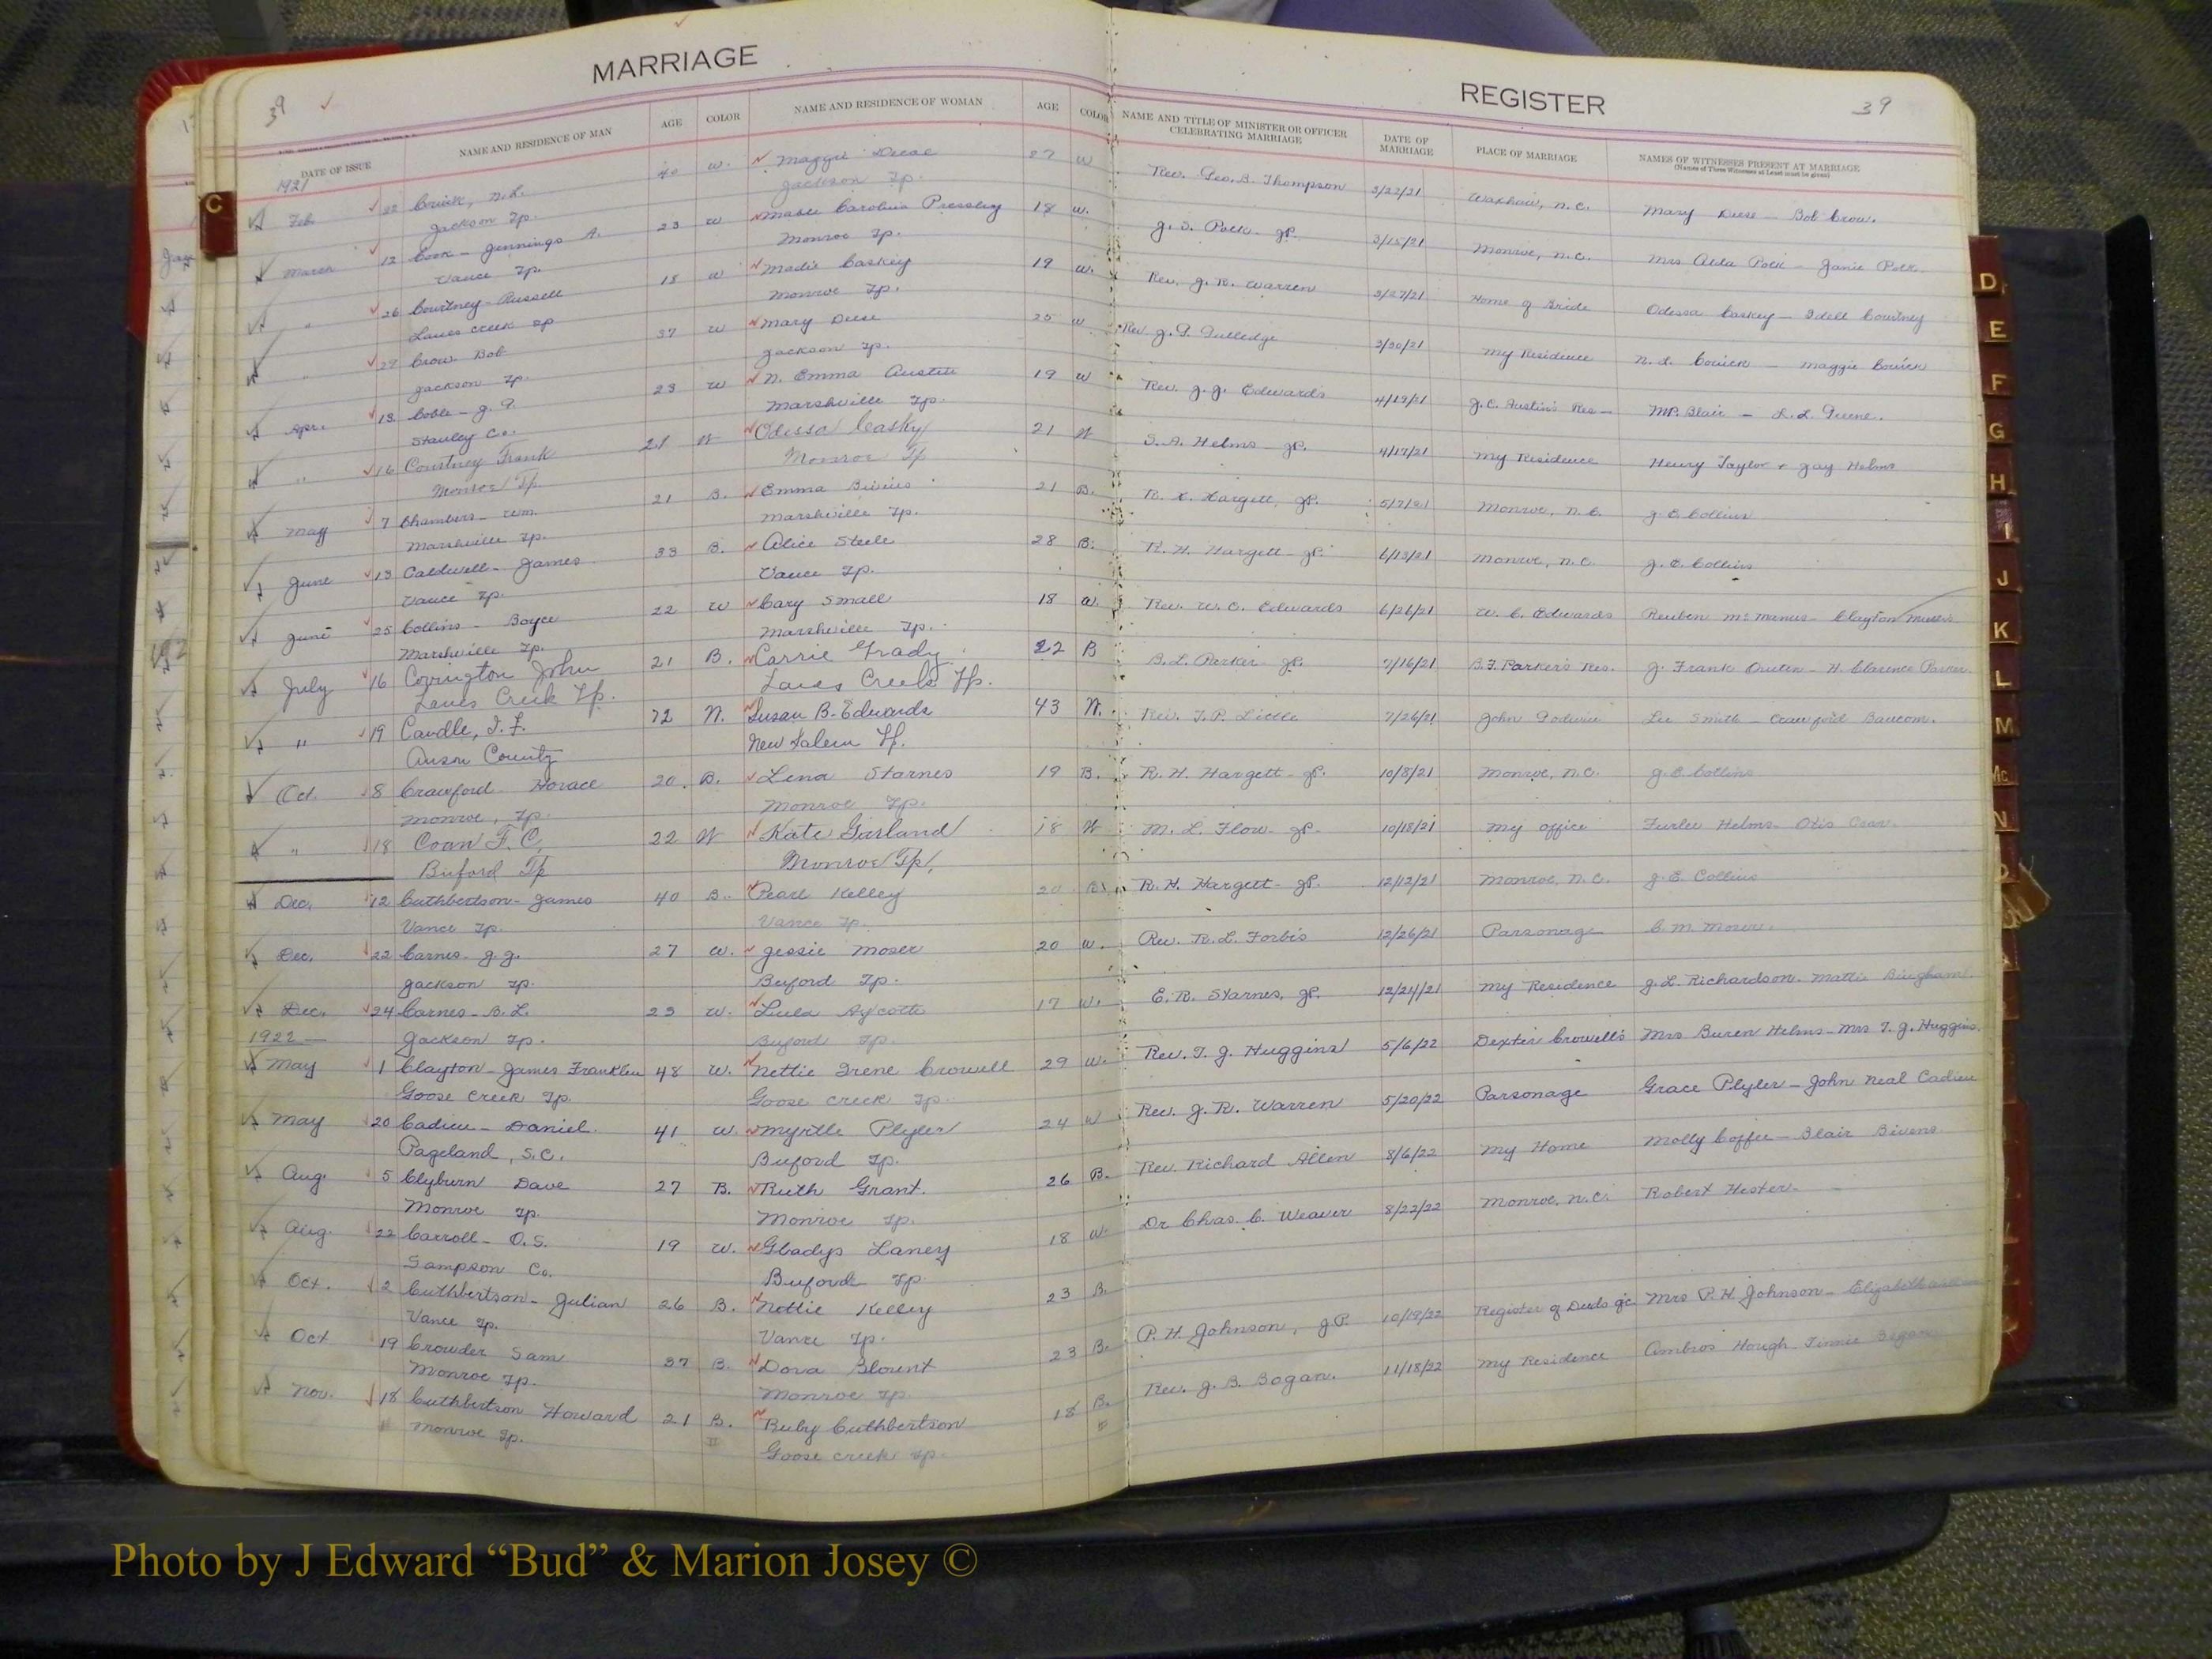 MARRIAGE
REGISTER
39
39
DATE OF ISSUE
NAME AND RESIDENCE OF MAN
AGE
COLOR
NAME AND RESIDENCE OF WOMAN
AGE
COLOR
NAME AND TITLE OF MINISTER OR OFFICER CELEBRATING MARRIAGE
DATE OF MARRIAGE
PLACE OF MARRIAGE
NAMES OF WITNESSES PRESENT AT MARRIAGE
(Names of Three Witnesses at Least must be given)
1921
Feb. 22 N.L. 40 W. Maggie 27 W Rev. Geo. B. Thompson 2/22/21 Waxhaw, N.C. Mary Deese - Bob Crow.
Jackson Tp. Jackson Tp.
March 12 Cook - Jennings A. 23 W Carolina Pressley 18 W. J. D. Polk JP. 3/15/21 Monroe, N.C. Mrs Polk - Janie Polk
Vance Tp. Monroe Tp.
" 26 Courtney - Russell 18 W Caskey 19 W. Rev. J. R. Warren 3/27/21 Home of Bride Odessa Caskey - Idell Courtney
Lanes Creek Tp Monroe Tp.
" 29 Crow Bob 37 W Mary Deese 25 W Rev J. P. Gulledge 3/30/21 My Residence N. L. - Maggie
Jackson Tp. Jackson Tp.
Apr. 13 Coble - J. A. 23 W N. Emma Austin 19 W Rev. J. J. Edwards 4/19/21 J.C. Austin's Res - Blair - L. L. Greene.
Stanley Co. Marshville Tp.
" 16 Courtney Frank 21 W Odessa Casky 21 W S. A. Helms - JP. 4/17/21 My Residence Henry Taylor & Jay Helms
Monroe Tp Monroe Tp
May 7 Chambers - Wm. 21 B. Emma Bivins 21 B. Hargett, JP. 5/7/21 Monroe, N.C. J. E. Collins
Marshville Tp. Marshville Tp.
June 13 Caldwell - James 33 B. Alice Steele 28 B. R. H. Hargett - JP. 6/13/21 Monroe, N.C. J. E. Collins
Vance Tp. Vance Tp.
June 25 Collins - Boyce 22 W Cary Small 18 W. Rev. W. C. Edwards 6/26/21 W. C. Edwards Reuben McManus - Clayton
Marshville Tp. Marshville Tp.
July 16 Covington John 21 B. Carrie Grady 22 B B. L. Parker JP. 7/16/21 B.F. Parker's Res. J. Frank - H. Clarence Parker
Lanes Creek Tp. Lanes Creek Tp.
" 19 Caudle, J. F. 72 W. Susan B. Edwards 43 W. Rev. J. P. Little 7/26/21 John Lee Smith - Crawford Baucom.
Anson County New Salem Tp.
Oct. 8 Crawford Horace 20 B. Lena Starnes 19 B. R. H. Hargett - JP. 10/8/21 Monroe, N.C. J. E. Collins
Monroe, Tp. Monroe Tp.
" 18 Coan F. C, 22 W Kate Garland 18 W M. L. Flow - JP. 10/18/21 My office Furlee Helms - Otis
Buford Tp Monroe Tp,
Dec. 12 Cuthbertson - James 40 B. Pearl Kelley 20 B. R. H. Hargett - JP. 12/12/21 Monroe, N.C. J. E. Collins
Vance Tp. Vance Tp.
Dec. 22 Carnes - J. J. 27 W. Jessie Moser 20 W. Rev. R. L. Forbis 12/26/21 Parsonage C. M. Moser.
Jackson Tp. Buford Tp.
Dec. 24 Carnes - B. L. 23 W. Lula Aycoth 17 W. E. R. Starnes, JP. 12/24/21 My Residence J. L. Richardson - Mattie Bingham.
Jackson Tp. Buford Tp.
1922
May 1 Clayton - James Franklin 48 W. Nettie Irene Crowell 29 W. Rev. T. J. Huggins 5/6/22 Dexter Crowell's Mrs Buren Helms - Mrs T. J. Huggins
Goose Creek Tp. Goose Creek Tp.
May 20 Cadieu - Daniel. 41 W. Myrtle Plyler 24 W Rev. J. R. Warren 5/20/22 Parsonage Grace Plyler - John Neal Cadieu
Pageland, S.C. Buford Tp.
Aug. 5 Clyburn Dave 27 B. Ruth Grant. 26 B. Rev. Richard Allen 8/6/22 My Home Molly Coffee - Blair Bivens
Monroe Tp. Monroe Tp.
Aug. 22 Carroll - O. S. 19 W. Gladys Laney 18 W. Dr Chas. C. Weaver 8/22/22 Monroe, N.C. Robert Hester
Sampson Co. Buford Tp.
Oct. 2 Cuthbertson - Julian 26 B. Nottie Kelley 23 B.
Vance Tp. Vance Tp.
Oct 19 Crowder Sam 37 B. Dora Blount 23 B. P. H. Johnson, J.P. 10/19/22 Register of Deeds Mrs P. H. Johnson - Elizabeth
Monroe Tp. Monroe Tp.
Nov. 18 Cuthbertson Howard 21 B. Ruby Cuthbertson 18 B. Rev. J. B. Bogan. 11/18/22 My Residence Ambros Hough
Monroe Tp. Goose Creek Tp.
C
D
E
F
G
H
I
J
K
L
M
Mc
N
O
Photo by J Edward “Bud” & Marion Josey ©